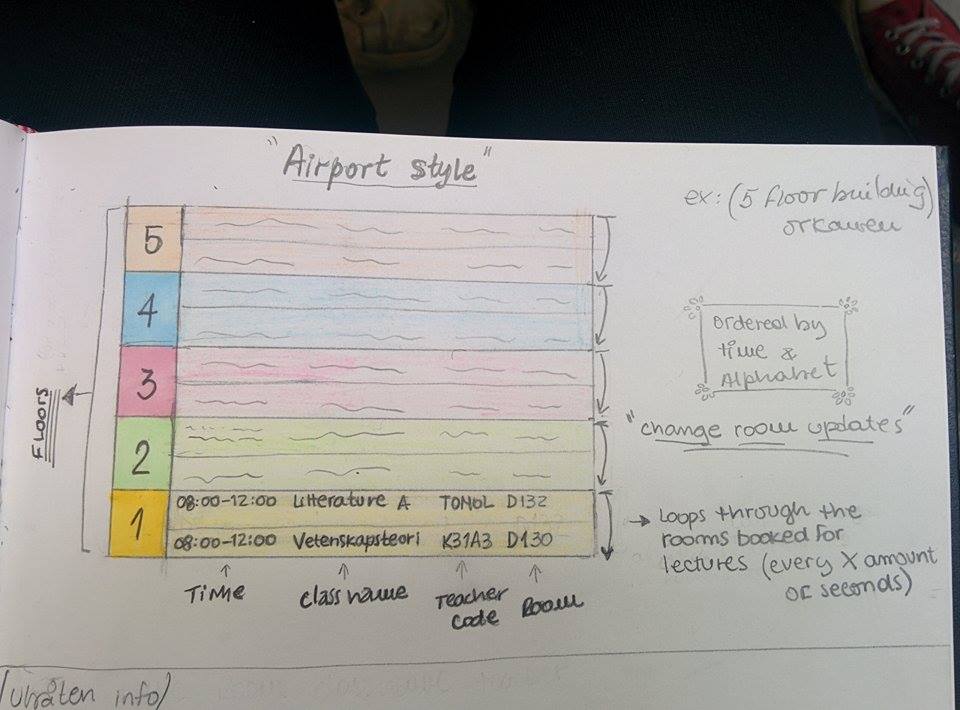 "Airport style"
ex: (5 floor building)
orkanen
5
4
3
2
1
Floors
08:00-12:00 Litterature A TONOL D132
08:00-12:00 Vetenskapsteori K31A3 D130
Time
class name
Teacher
code
Room
Ordered by
time &
Alphabet
"change room updates"
→ Loops through the
rooms booked for
lectures (every X amount
of seconds)
info)